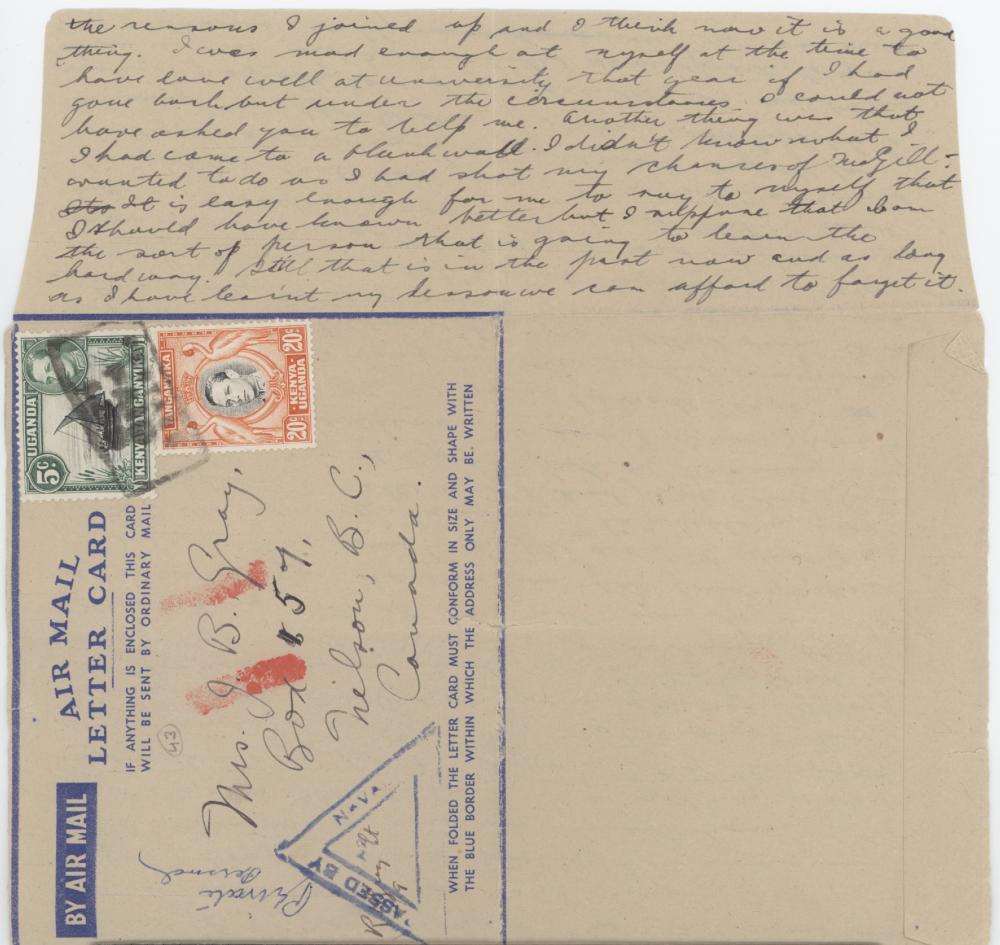 the reasons I joined up and I think now it is a good
thing. I was mad enough at myself at the time to
have done well at university that year if I had
gone back but under the circumstances I could not
have asked you to help me. Another thing was that
I had come to a blank wall. I didn't know what I
wanted to do as I had shot my chances of McGill-
It is easy enough for me to say to myself that
I should have known better but I suppose that I am
the sort of person that is going to learn the
hard way. Still that is in the past now and as long
as I have learnt my lesson we can afford to forget it.
UGANDA
5c
KENYA TANGANYIKA
TANGANYIKA
20c
KENYA-
UGANDA
20c
BY AIR MAIL
AIR MAIL
LETTER CARD
IF ANYTHING IS ENCLOSED THIS CARD
WILL BE SENT BY ORDINARY MAIL
43
Mrs. J. B. Gray,
Box 57,
Nelson, B.C.,
Canada.
Private
PASSED BY
NAVA
WHEN FOLDED THE LETTER CARD MUST CONFORM IN SIZE AND SHAPE WITH
THE BLUE BORDER WITHIN WHICH THE ADDRESS ONLY MAY BE WRITTEN